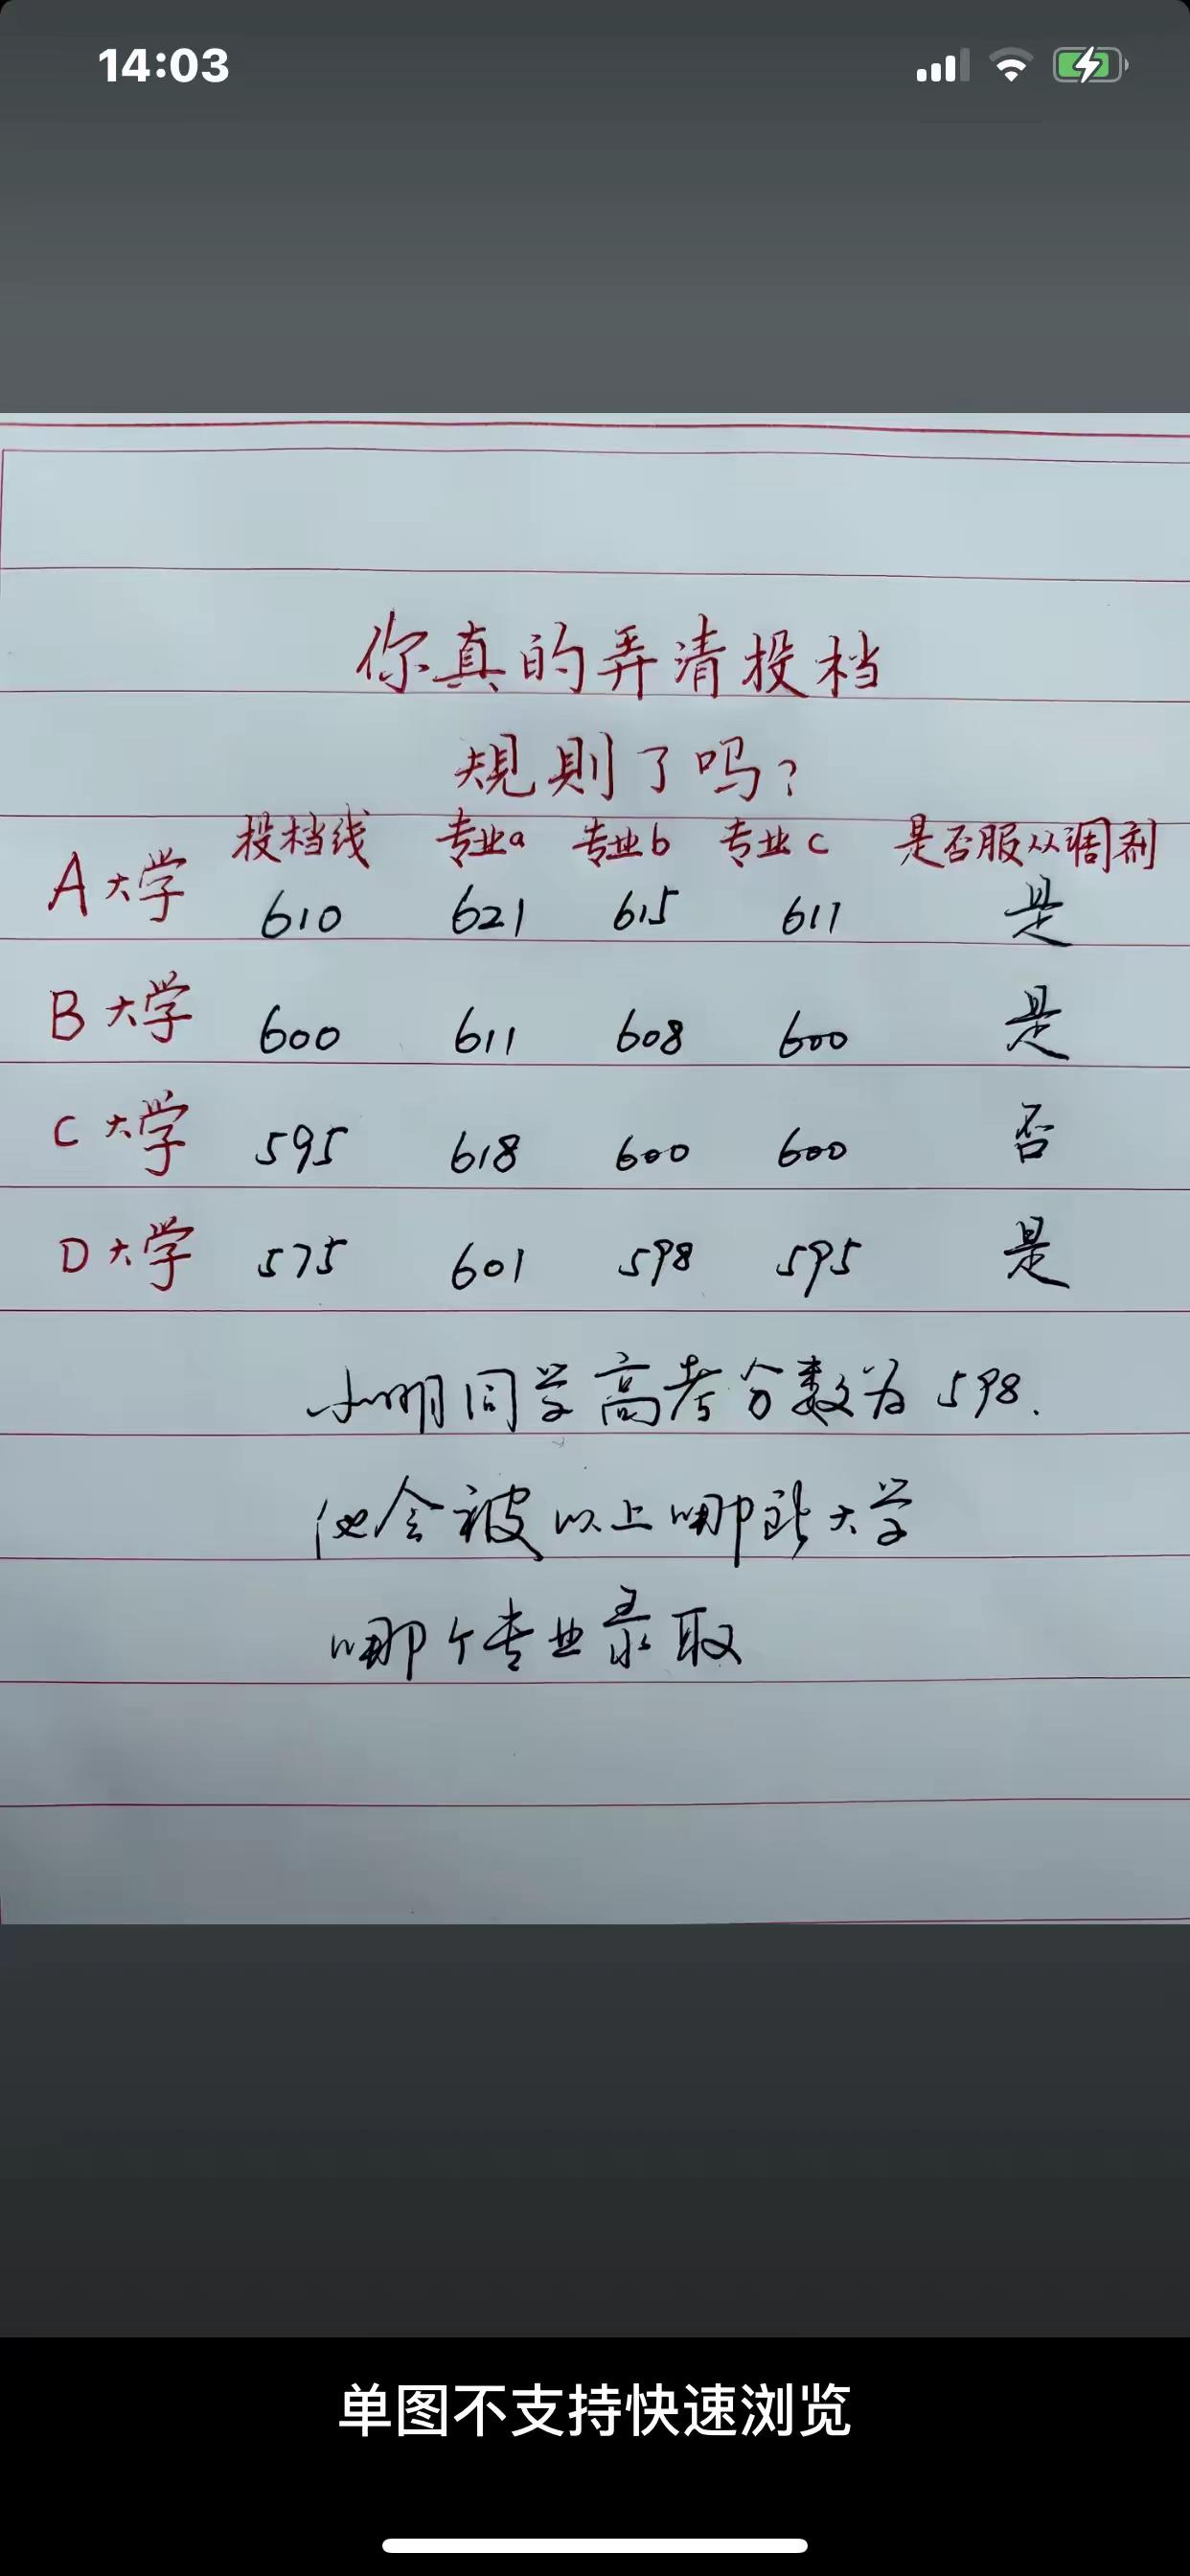 14:03
你真的弄清投档
规则了吗?
投档线 专业a 专业b 专业c 是否服从调剂
A大学 610 621 615 611 是
B大学 600 611 608 600 是
C大学 595 618 600 600 否
D大学 575 601 598 595 是
小明同学高考分数为598.
他会被以上哪所大学
哪个专业录取
单图不支持快速浏览